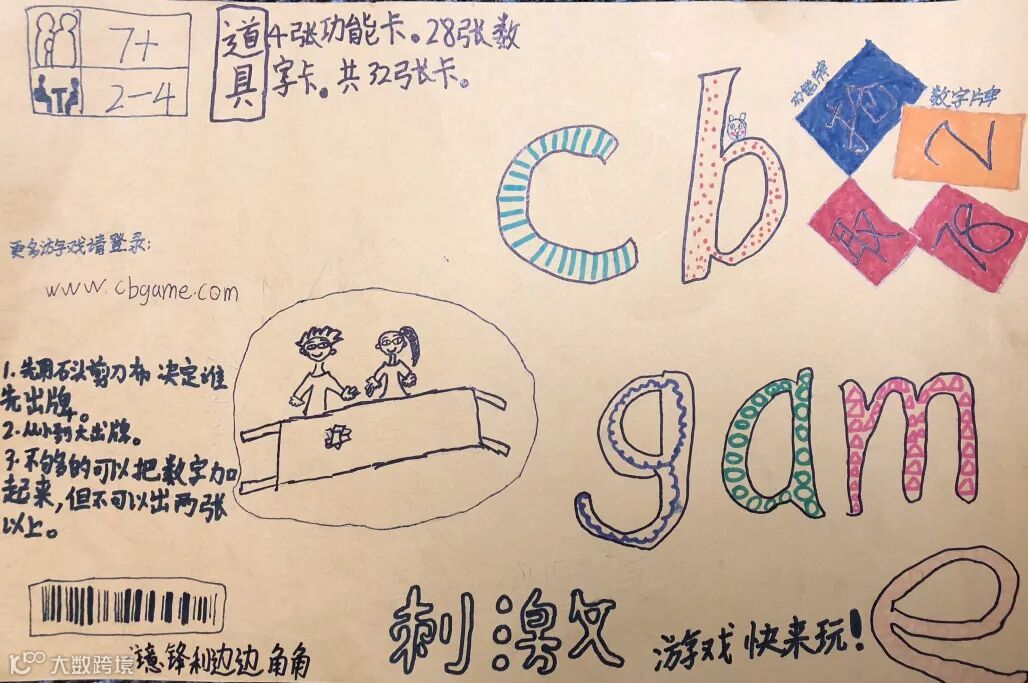 7+
2-4
道具
4张功能卡。28张数
字卡。共32张卡。
cb
功能牌
数字牌
2
更多游戏请登录:
www.cbgame.com
1.先用石头剪刀布决定谁
先出牌。
2.从小到大出牌。
3.不够的可以把数字加
起来,但不可以出两张
以上。
game
刺激
游戏快来玩!
注意锋利边边角角
大数跨境